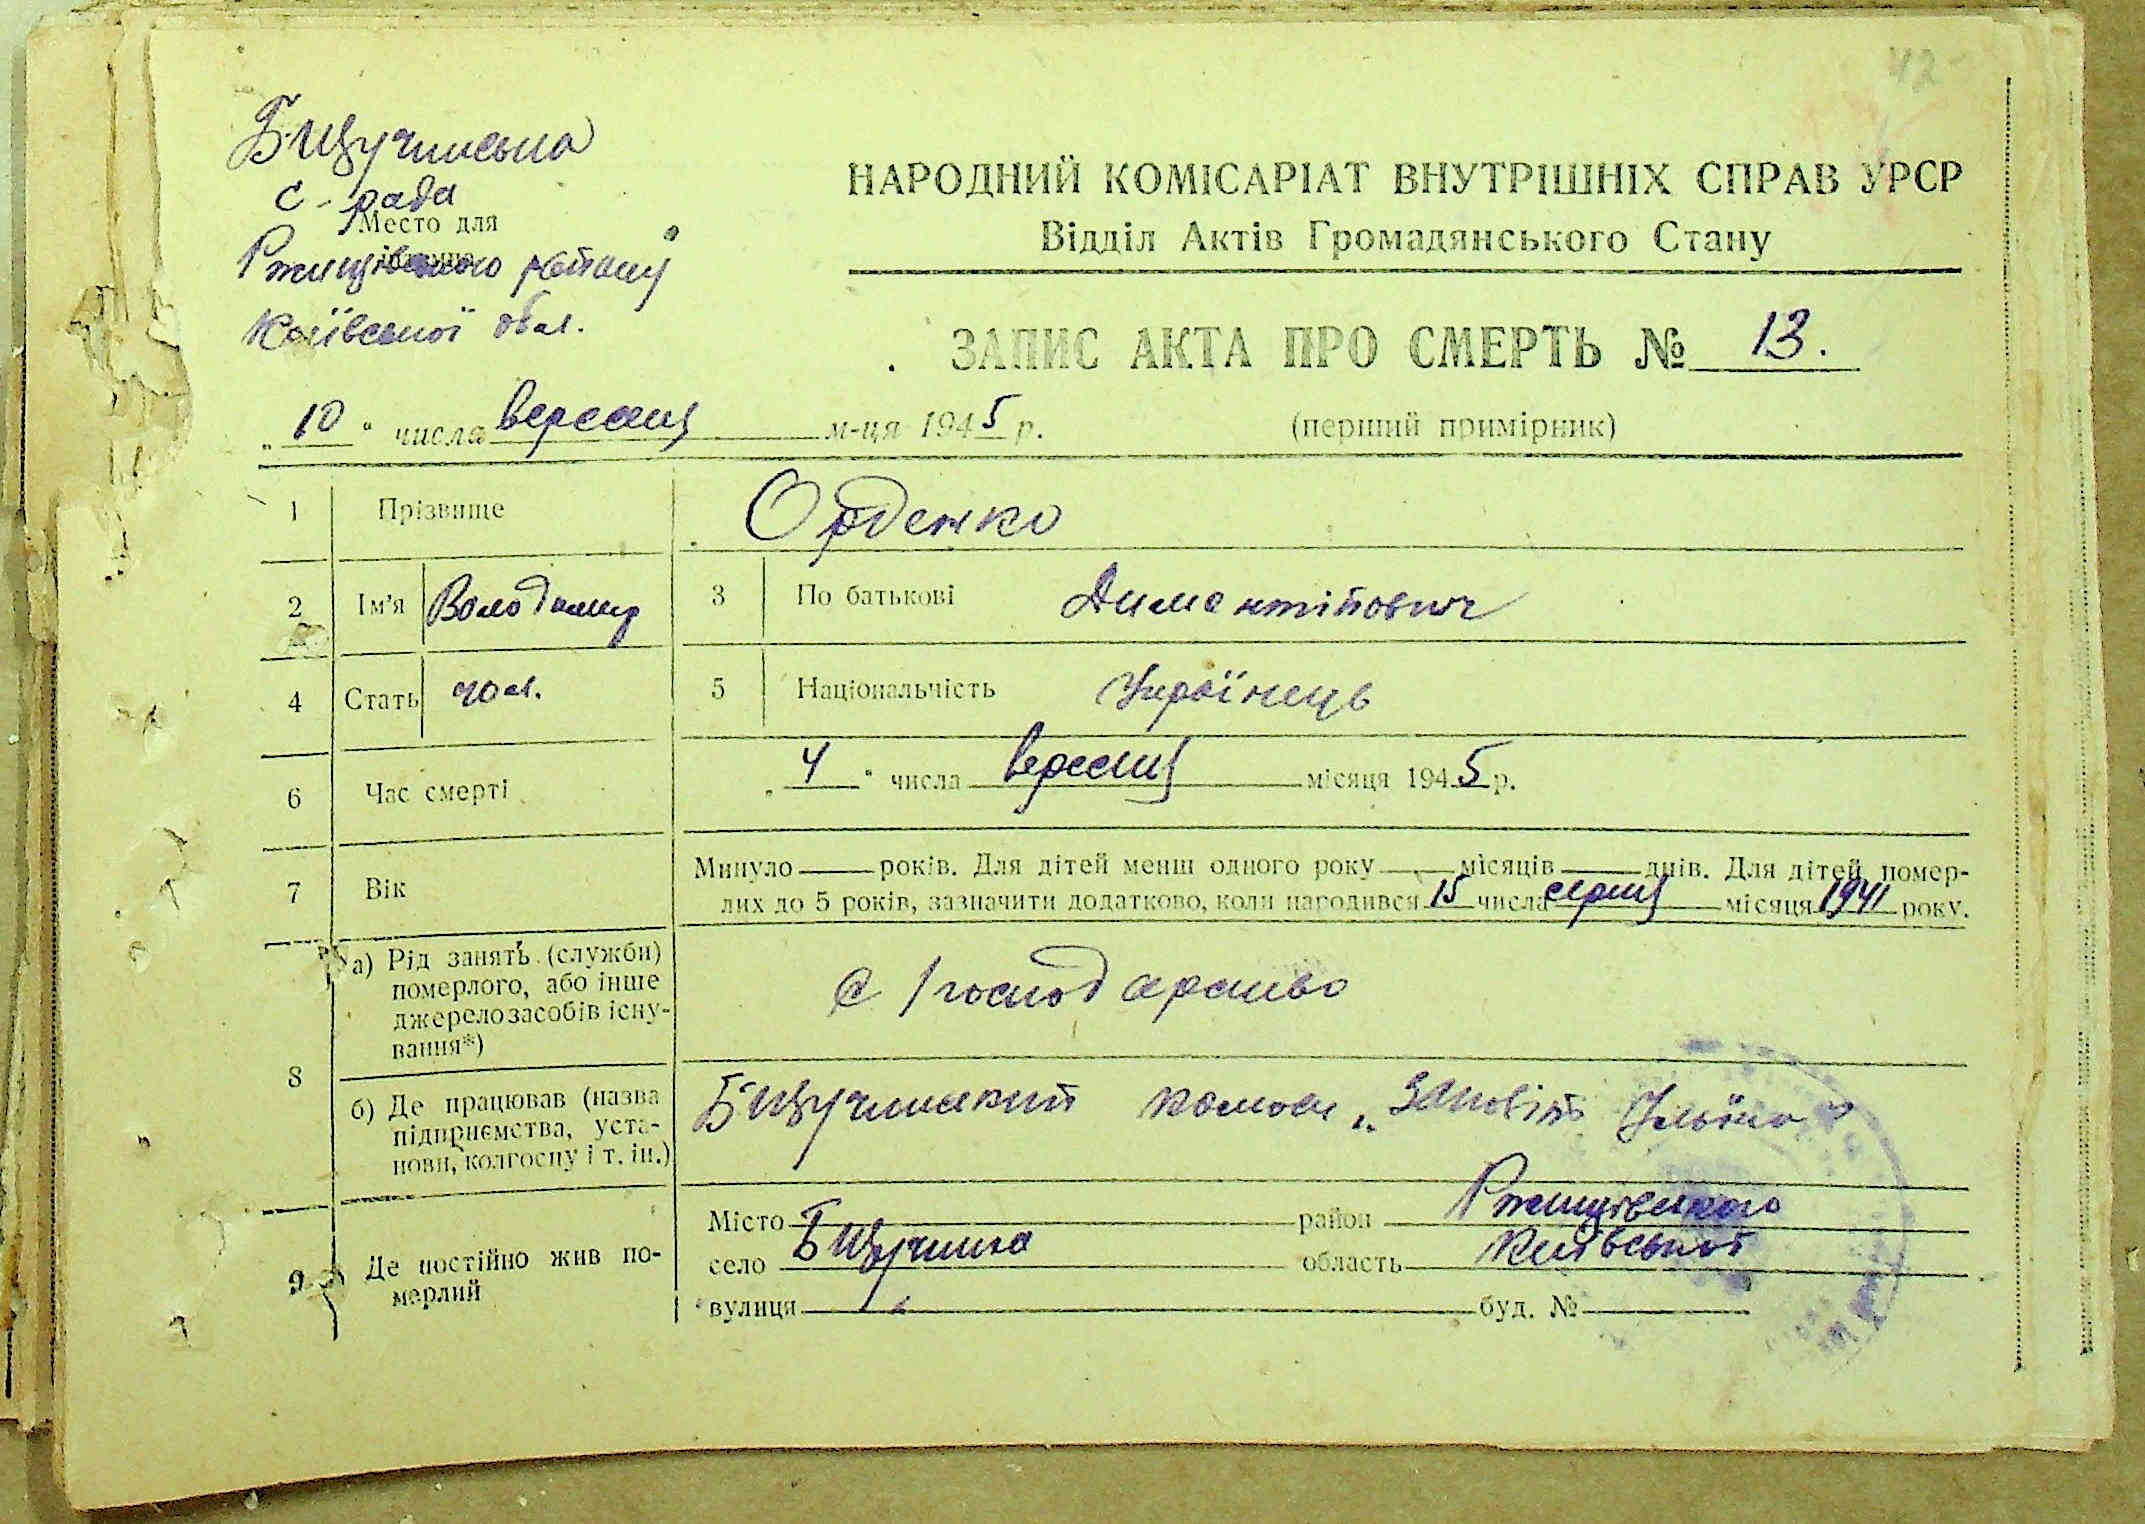 42
Б-Щучинська
с-рада
Место для
Ржищівского району
Київської обл.
НАРОДНИЙ КОМІСАРІАТ ВНУТРІШНІХ СПРАВ УРСР
Відділ Актів Громадянського Стану
ЗАПИС АКТА ПРО СМЕРТЬ № 13.
„ 10 " числа вересня м-ця 1945 р. (перший примірник)
1 Прізвище Орденко
2 Ім'я Володимир 3 По батькові
4 Стать чол. 5 Національність Українець
6 Час смерті „ 4 " числа вересня місяця 1945 р.
7 Вік Минуло — років. Для дітей менш одного року — місяців — днів. Для дітей помер-
лих до 5 років, зазначити додатково, коли народився 15 числа серпня місяця 1941 року.
8 а) Рід занять (службы) померлого, або інше джерело засобів існу-вання*) с/господарство
б) Де працював (назва підприємства, уста-нови, колгоспу і т. ін.) Б-Щучинский колгосп „Заповіт Ільіча"
9 Де постійно жив по-мерлий
Місто район Ржищівского
село Б Щучинка область Київської
вулиця буд. №